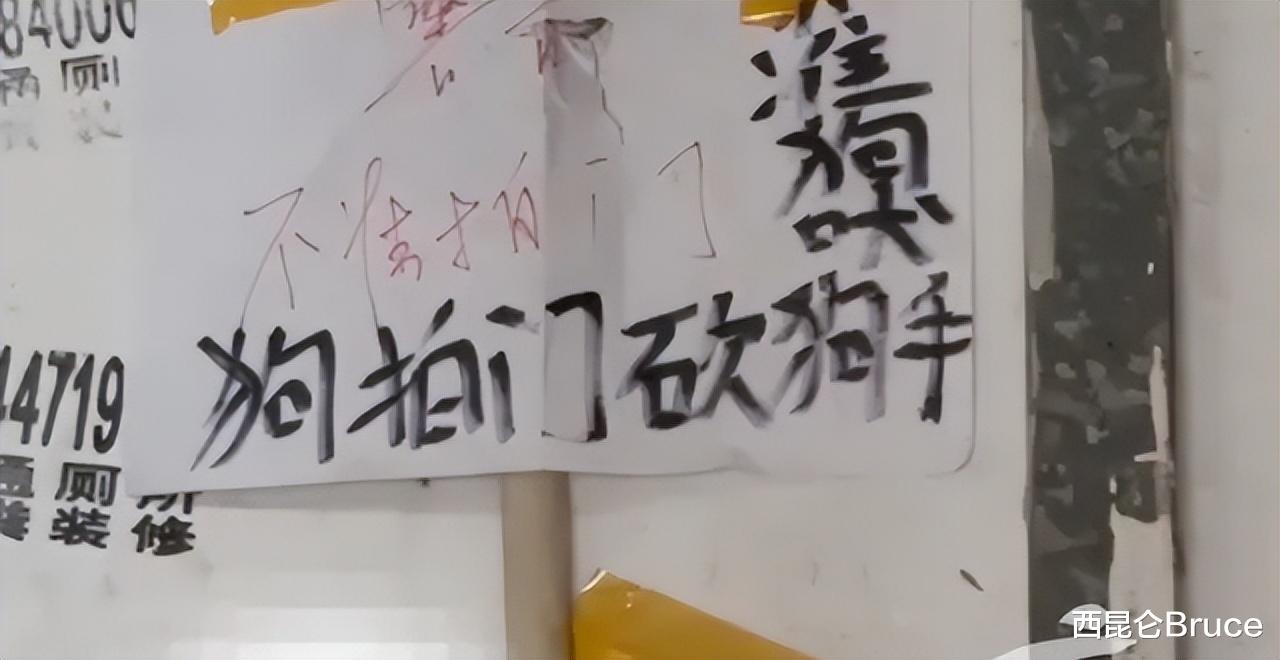 不准拍门
准
狗
吠
狗拍门砍狗手
84000
厕
4719
厕所
装修
西昆仑Bruce